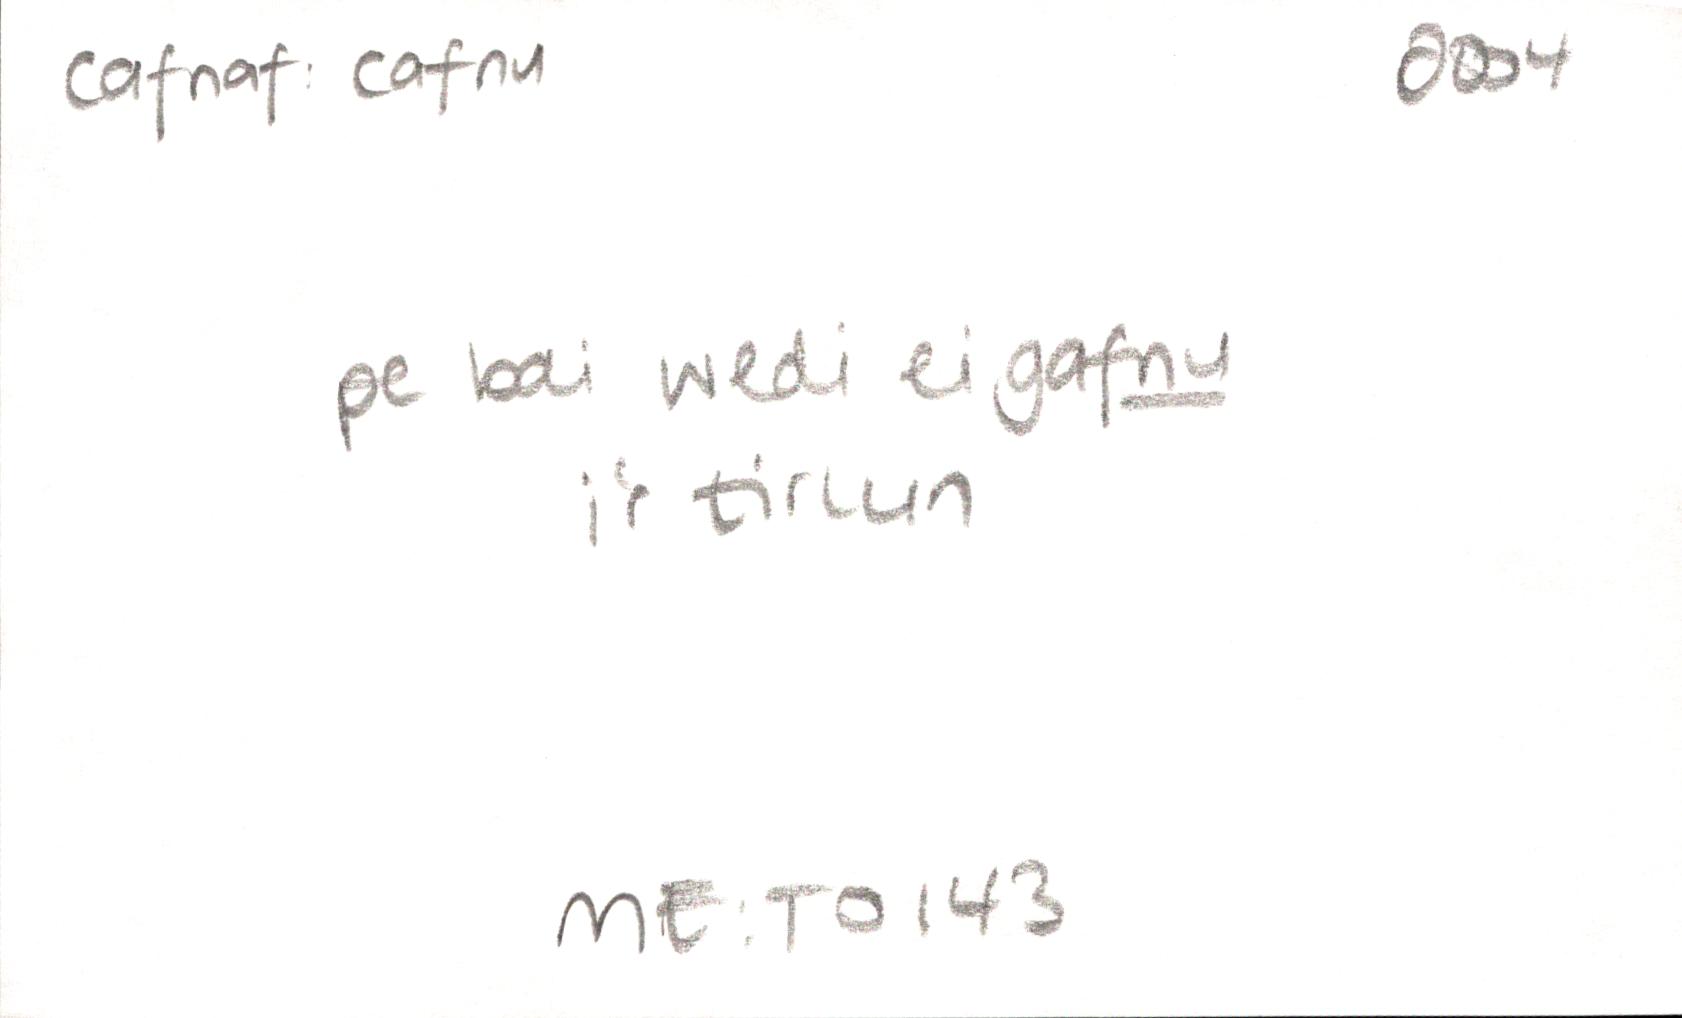 cafnaf: cafnu 0004
pe bai wedi ei gafnu
i'r tirlun
ME:TO 143